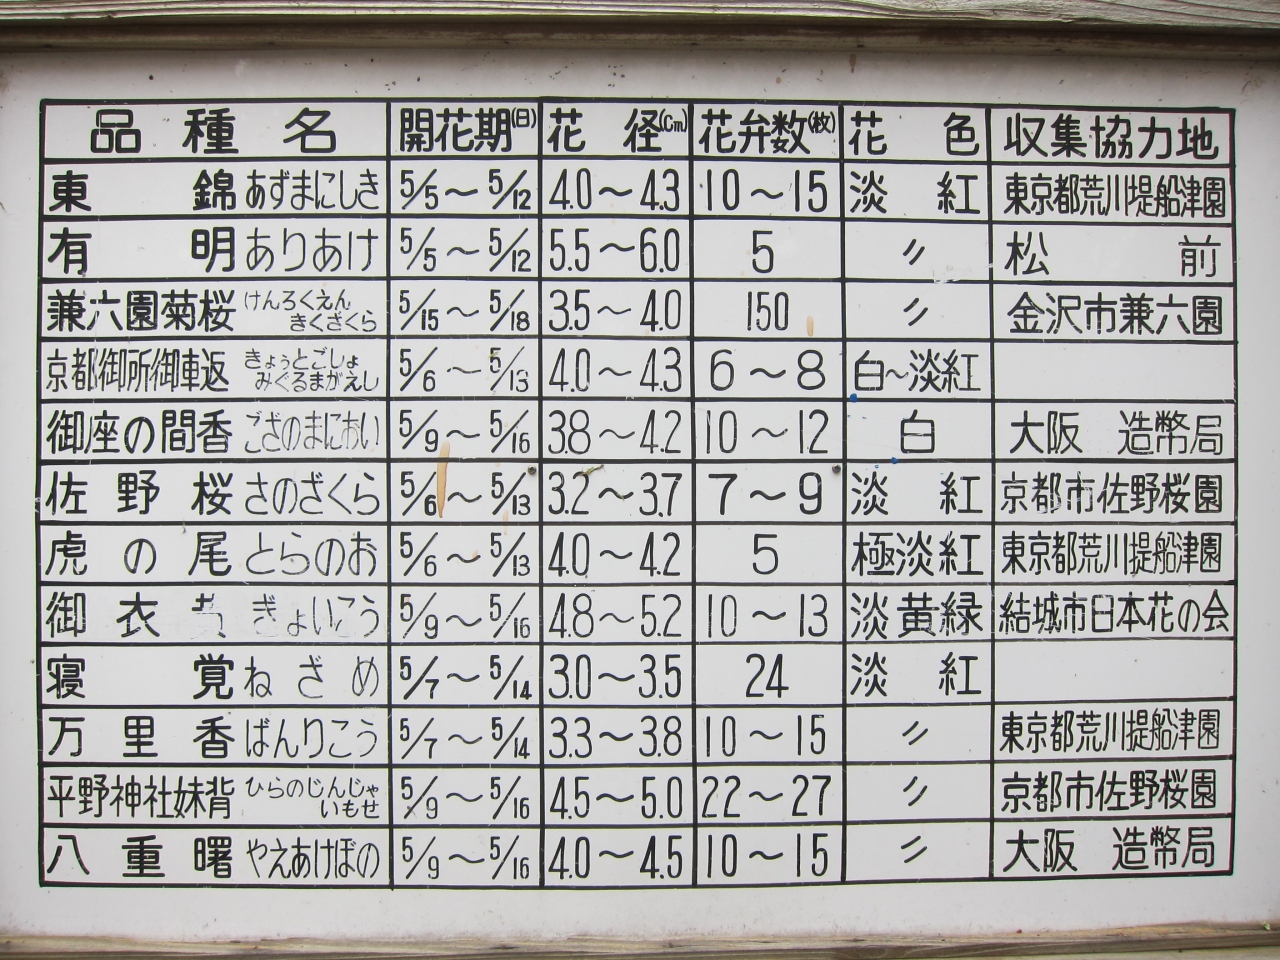 品種名 開花期(日) 花径(cm) 花弁数(枚) 花色 収集協力地
東錦 あずまにしき 5/5～5/12 4.0～4.3 10～15 淡紅 東京都荒川堤船津園
有明 ありあけ 5/5～5/12 5.5～6.0 5 〃 松前
兼六園菊桜 けんろくえんきくざくら 5/15～5/18 3.5～4.0 150 〃 金沢市兼六園
京都御所御車返 きょうとごしょみくるまがえし 5/6～5/13 4.0～4.3 6～8 白～淡紅
御座の間香 ござのまにおい 5/9～5/16 3.8～4.2 10～12 白 大阪 造幣局
佐野桜 さのざくら 5/6～5/13 3.2～3.7 7～9 淡紅 京都市佐野桜園
虎の尾 とらのお 5/6～5/13 4.0～4.2 5 極淡紅 東京都荒川堤船津園
御衣黄 ぎょいこう 5/9～5/16 4.8～5.2 10～13 淡黄緑 結城市日本花の会
寝覚 ねざめ 5/7～5/14 3.0～3.5 24 淡紅
万里香 ばんりこう 5/7～5/14 3.3～3.8 10～15 〃 東京都荒川堤船津園
平野神社妹背 ひらのじんじゃいもせ 5/9～5/16 4.5～5.0 22～27 〃 京都市佐野桜園
八重曙 やえあけぼの 5/9～5/16 4.0～4.5 10～15 〃 大阪 造幣局